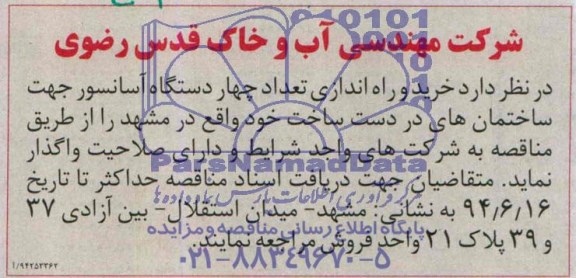 شرکت مهندسی آب و خاک قدس رضوی
در نظر دارد خرید و راه اندازی تعداد چهار دستگاه آسانسور جهت
ساختمان های در دست ساخت خود واقع در مشهد را از طریق
مناقصه به شرکت های واجد شرایط و دارای صلاحیت واگذار
نماید. متقاضیان جهت دریافت اسناد مناقصه حداکثر تا تاریخ
۹۴/۶/۱۶ به نشانی: مشهد- میدان استقلال- بین آزادی ۳۷
و ۳۹ پلاک ۲۱ واحد فروش مراجعه نمایند.
۹۴۲۵۳۳۶۲/آ
ParsNamadData
پایگاه اطلاع رسانی مناقصه و مزایده
۰۲۱-۸۸۳۴۹۶۷۰-۵